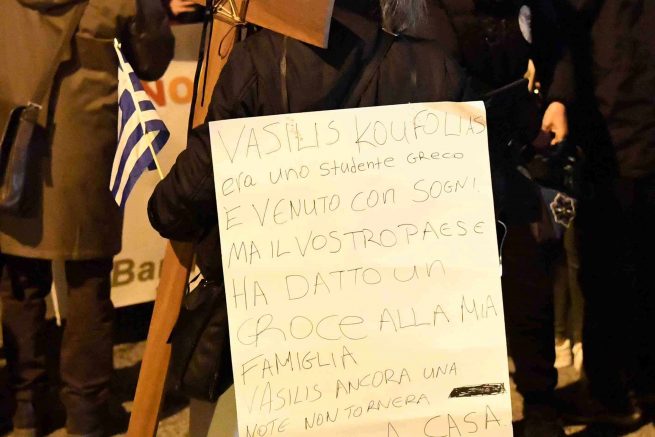 NO
Bar
VASILIS KOUFOLIAS
era uno studente GRECO
E VENUTO CON SOGNI.
MA IL VOSTRO PAESE
HA DATTO un
CROCE ALLA MIA
FAMIGLIA
VASILIS ANCORA UNA
NOTE NON TORNERA
A CASA